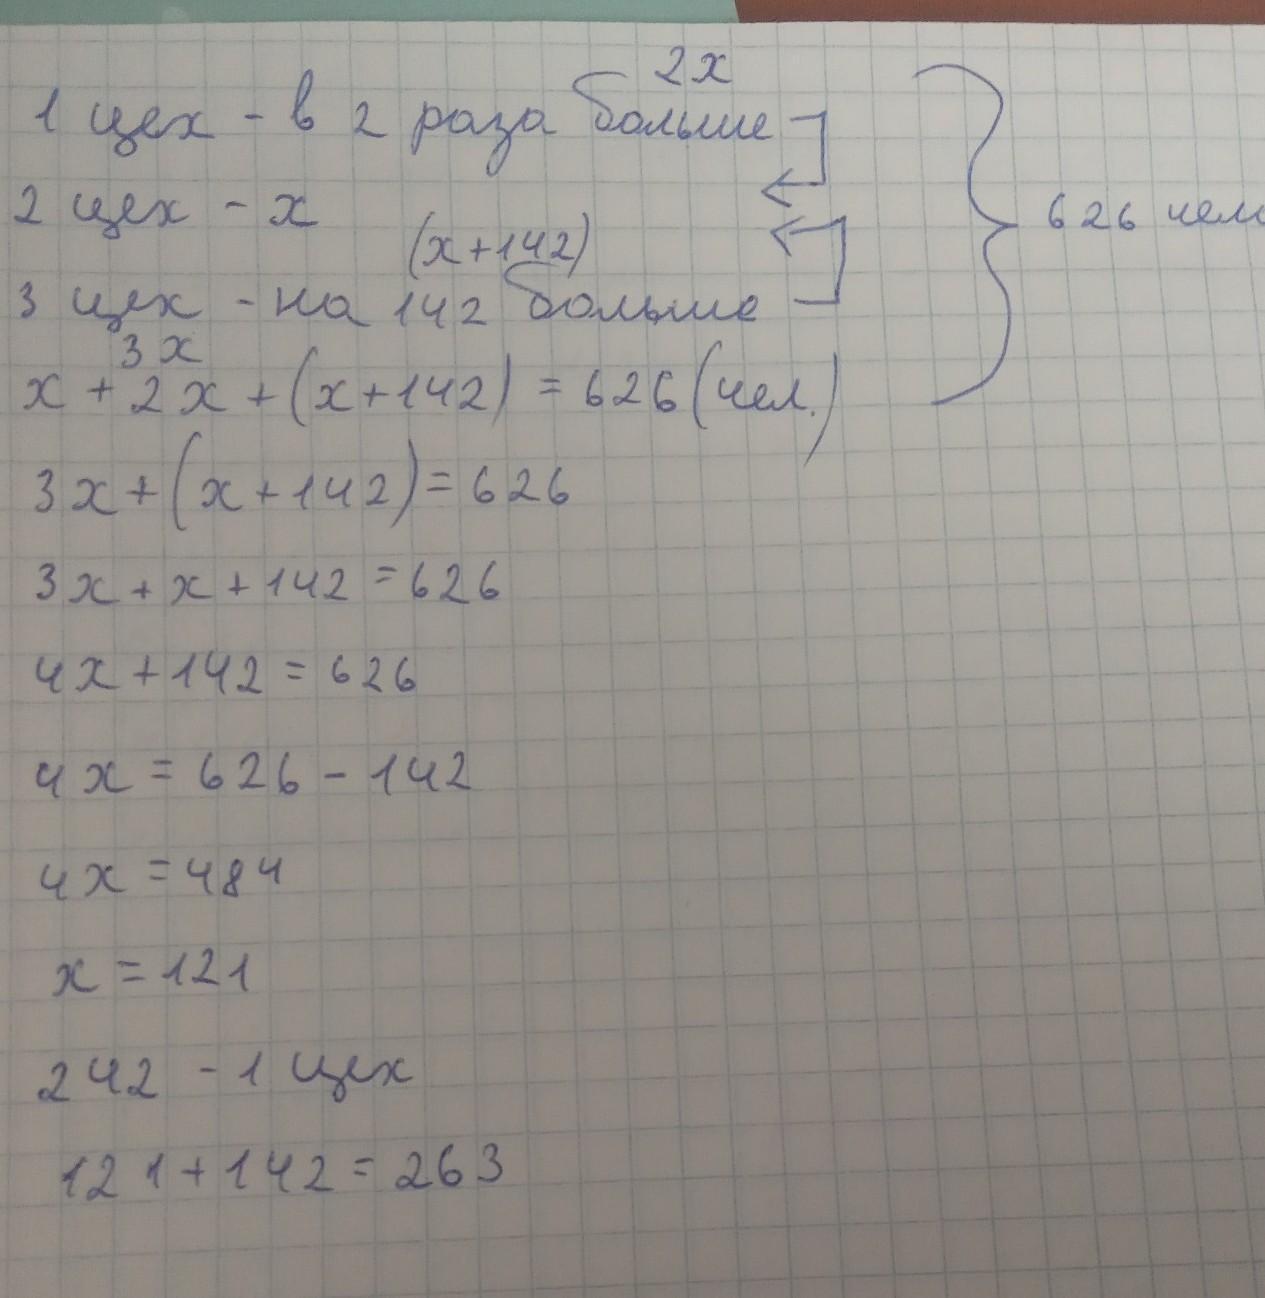 2x
1 цех - в 2 раза больше
2 цех - x
626 чел
(x+142)
3 цех - на 142 больше
3x
x + 2x + (x+142) = 626 (чел.)
3x + (x+142) = 626
3x + x + 142 = 626
4x + 142 = 626
4x = 626 - 142
4x = 484
x = 121
242 - 1 цех
121 + 142 = 263